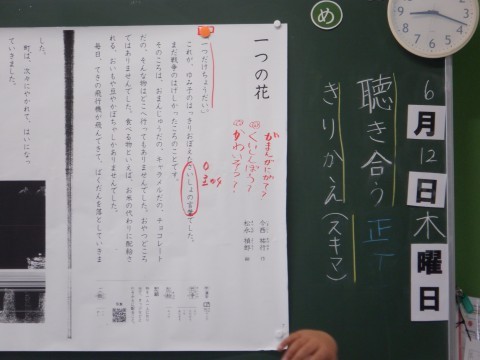 め
6月12日木曜日
聴き合う 正丁
きりかえ(スキマ)
一つの花
今西 祐行 作
松永 禎郎 絵
がまんがにが?
くいしんぼう?
かわいそう?
「一つだけちょうだい。」
これが、ゆみ子のはっきりおぼえたさいしょの言葉でした。
まだ戦争のはげしかったころのことです。
そのころは、おまんじゅうだの、キャラメルだの、チョコレート
だの、そんな物はどこへ行ってもありませんでした。おやつどころ
ではありませんでした。食べる物といえば、お米の代わりに配給さ
れる、おいもや豆やかぼちゃしかありませんでした。
毎日、てきの飛行機が飛んできて、ばくだんを落としていきま
した。
町は、次々にやかれて、はいになっ
ていきました。